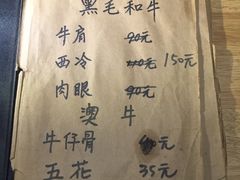 黑毛和牛
牛肩 90元
西冷 150元
肉眼 90元
澳牛
牛仔骨 元
五花 35元